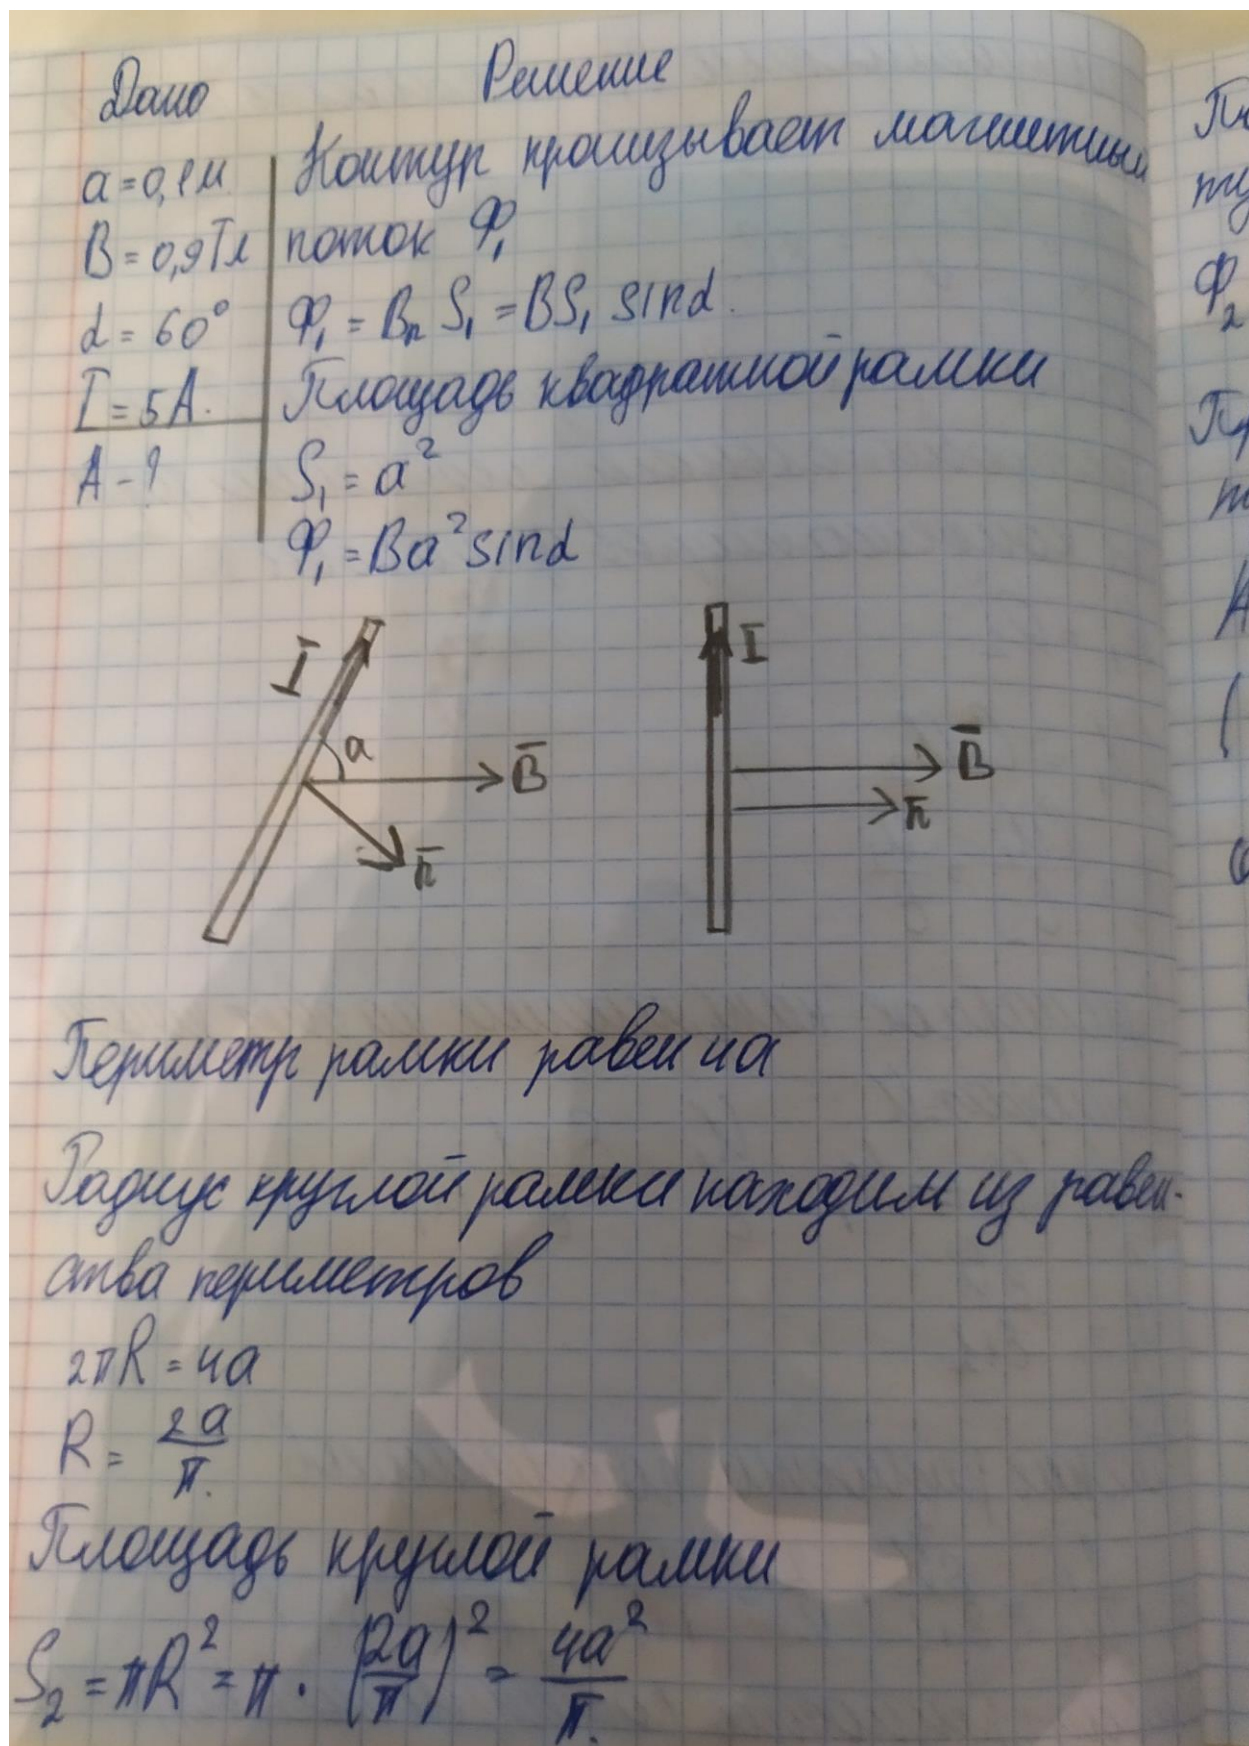 Дано Решение
a = 0,1 м Контур пронизывает магнитный
B = 0,9 Тл поток Ф₁
α = 60° Ф₁ = Bₙ S₁ = BS₁ sinα.
I = 5 А. Площадь квадратной рамки
A - ? S₁ = a²
Ф₁ = Ba² sinα
I a B n
I B n
Периметр рамки равен 4a
Радиус круглой рамки находим из равен-
ства периметров
2πR = 4a
R = 2a/π.
Площадь круглой рамки
S₂ = πR² = π · (2a/π)² = 4a²/π.
Ф₂